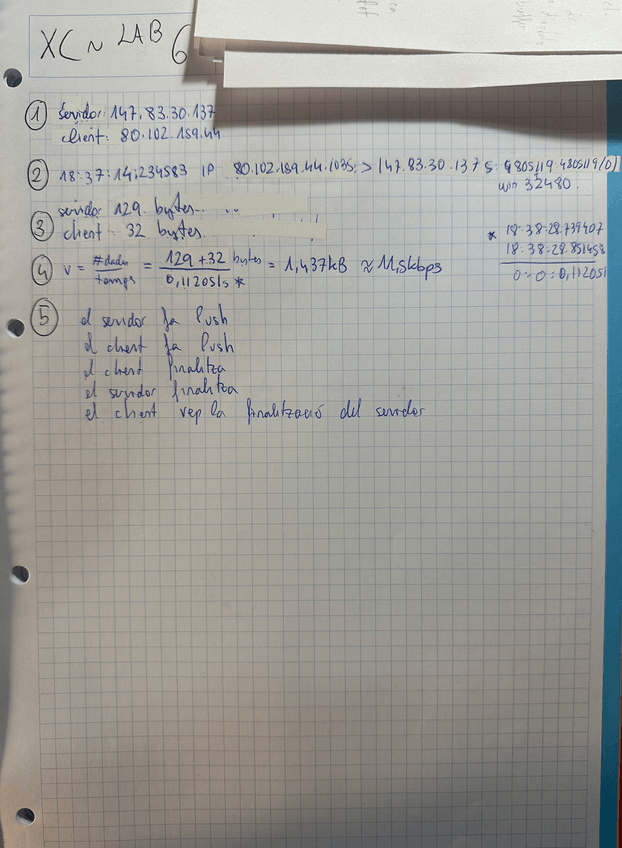 XC ~ LAB 6
① Servidor: 147.83.30.137
client: 80.102.159.44
② 18:37:14:234583 IP 80.102.189.44.1035 > 147.83.30.137 S: 4805119:4805119(0)
win 32480.
③ servidor 129 bytes
client: 32 bytes
④ v = #dades/temps = 129 + 32 bytes/0,112051s* = 1,437kB ≈ 11,5kbps
* 18:38:28.739407
18:38:28.851458
0:0:0,112051
⑤ el servidor fa Push
el client fa Push
el client finalitza
el servidor finalitza
el client rep la finalització del servidor